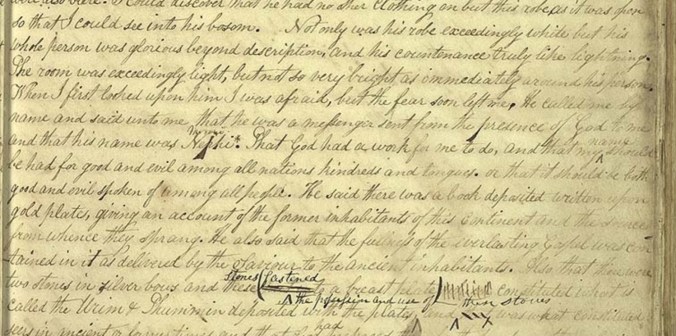 were also bare. I could discover that he had no other clothing on but this robe, as it was open
so that I could see into his bosom. Not only was his robe exceedingly white but his
whole person was glorious beyond description, and his countenance truly like lightning.
The room was exceedingly light, but not so very bright as immediately around his person
When I first looked upon him I was afraid, but the fear soon left me. He called me by
name and said unto me, that he was a messenger sent from the presence of God to me
and that his name was Nephi. That God had a work for me to do, and that my name should
be had for good and evil among all nations kindreds and tongues. or that it should be both
good and evil spoken of among all people. He said there was a book deposited written upon
gold plates, giving an account of the former inhabitants of this continent and the source
from whence they sprang. He also said that the fullness of the everlasting Gospel was con
tained in it as delivered by the Saviour to the ancient inhabitants. Also that there were
two stones in silver bows and these stones fastened to a breast plate constituted what is
called the Urim & Thummim deposited with the plates, and the possession and use of these stones was what constituted
seers in ancient or